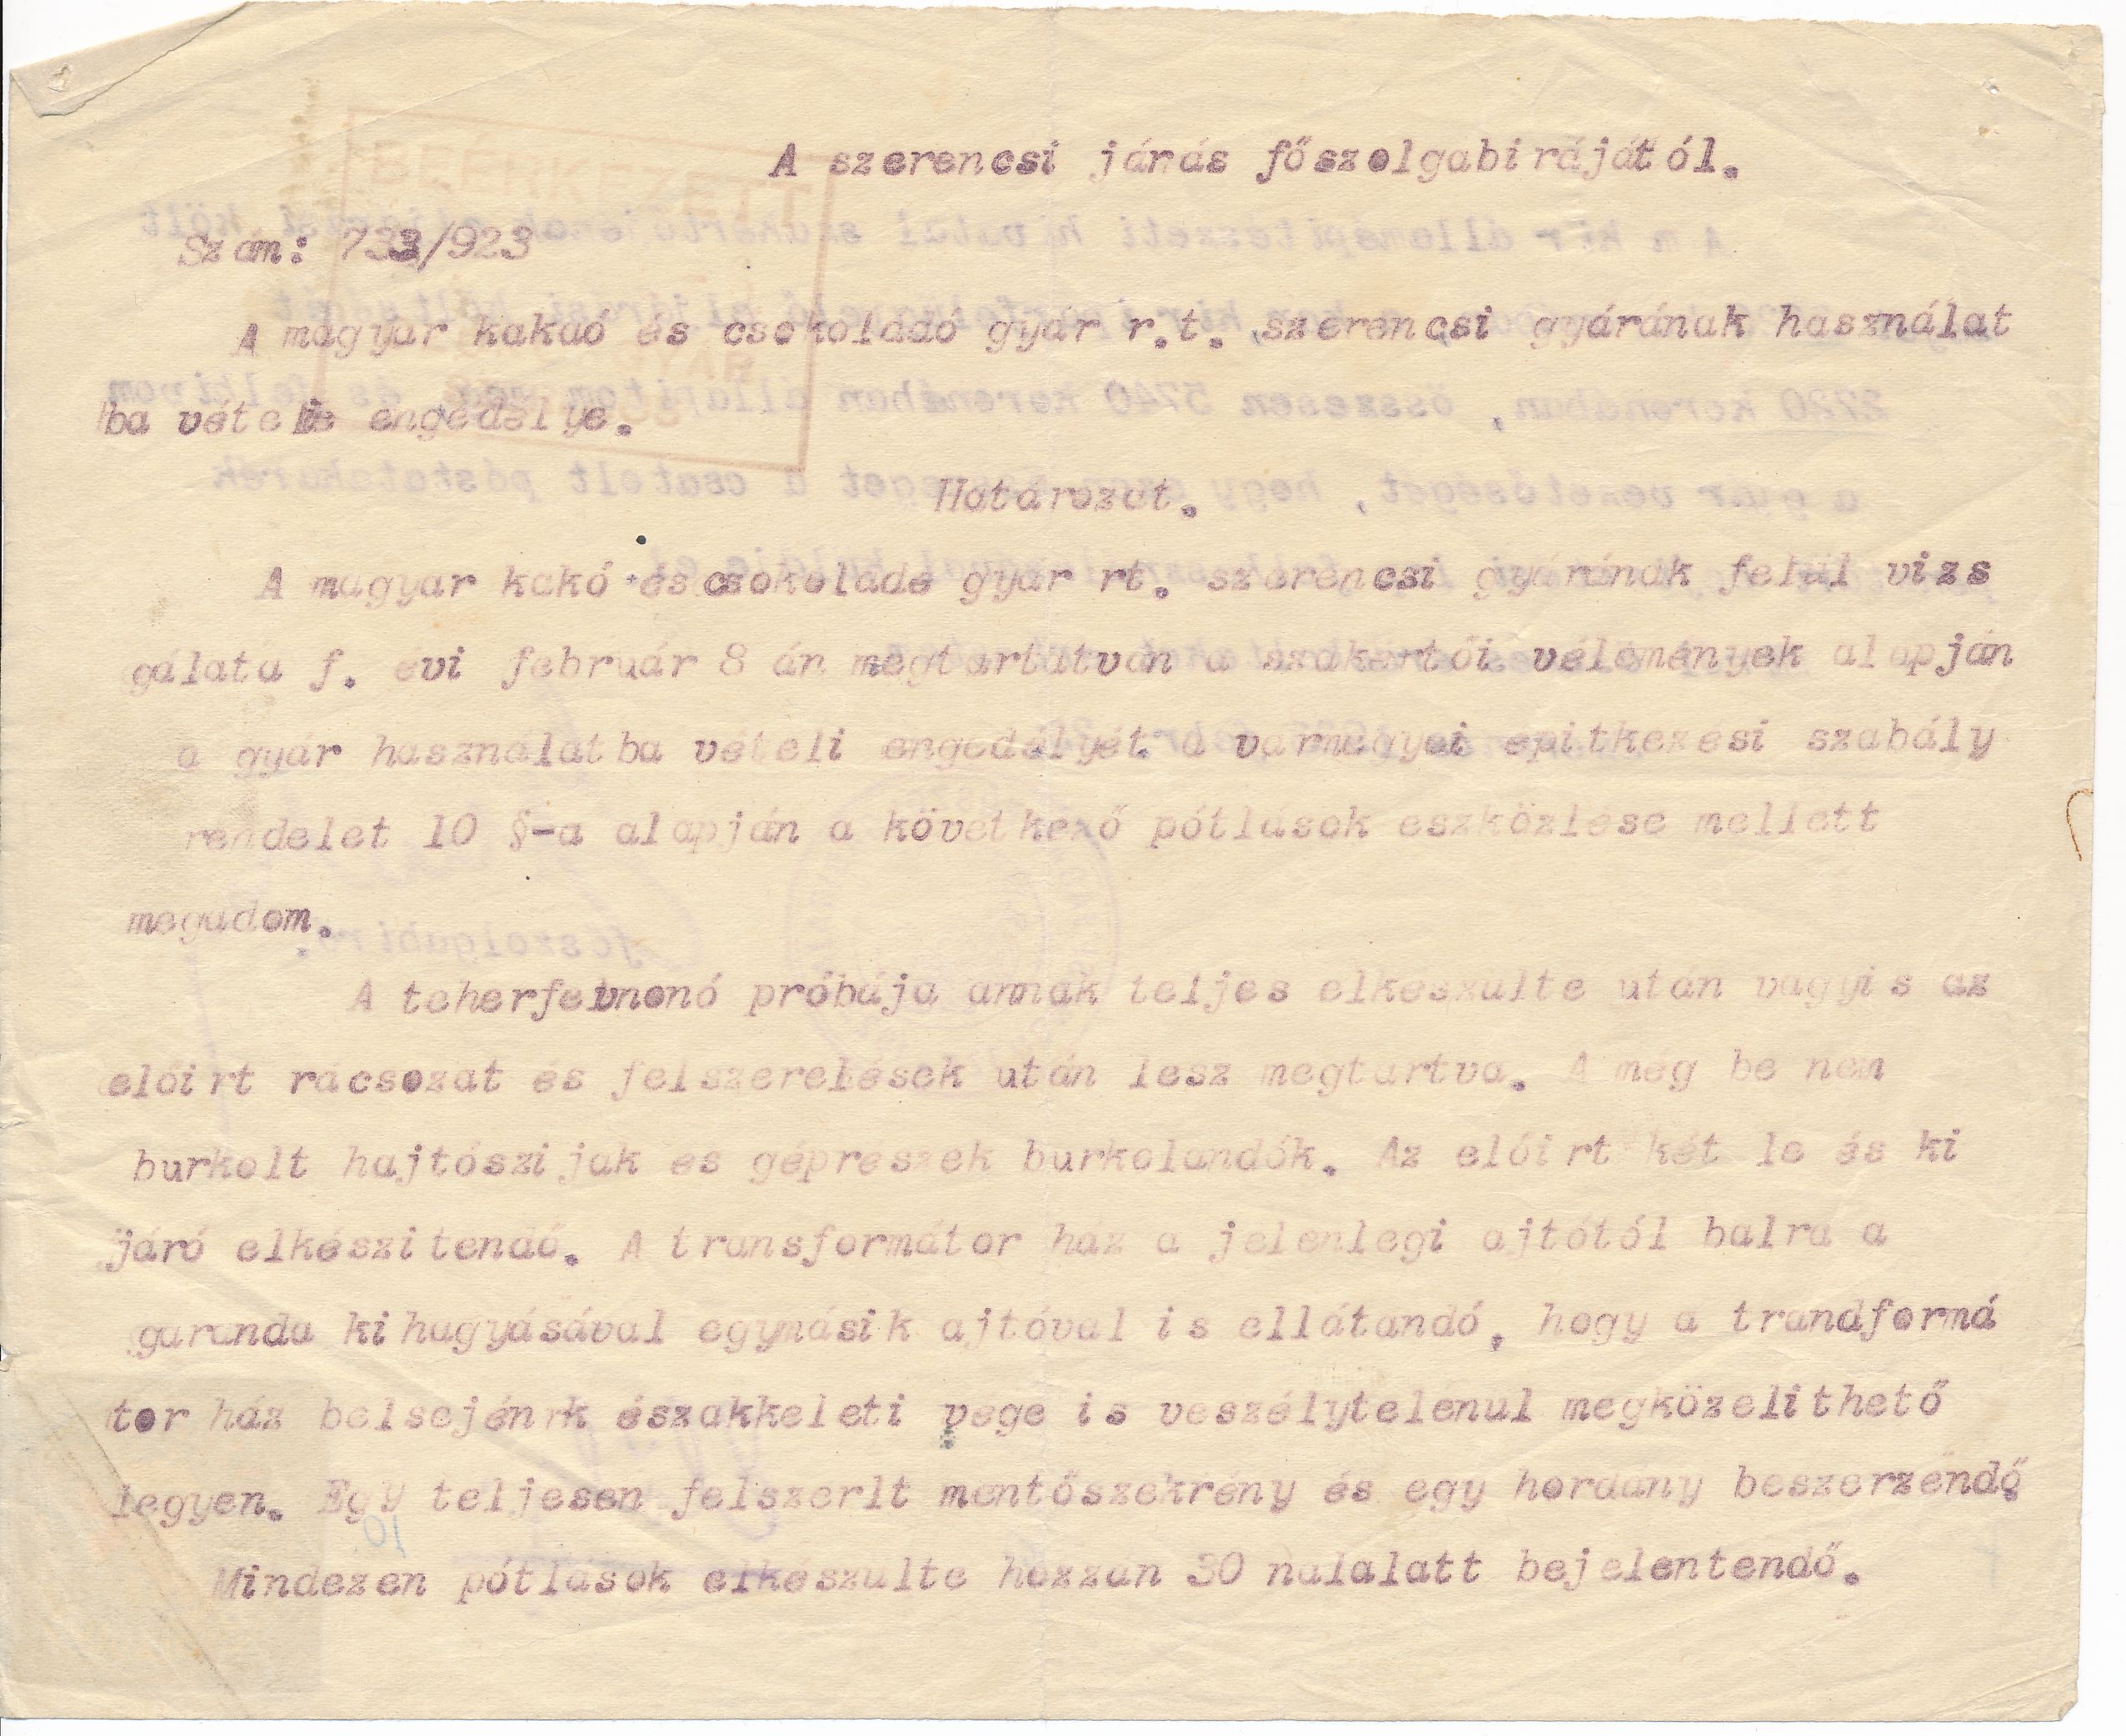 A szerencsi járás főszolgabirájától.
Szám: 733/923
A magyar kakaó és csokoládó gyár r.t. szerencsi gyárának használat
ba vétele engedélye.
Határozat.
A magyar kakó és csokolade gyár rt. szerencsi gyárának felül vizs
gálata f. évi február 8 án megtartatván a szakértői vélemények alapján
a gyár használatba vételi engedélyét a vármegyei épitkezési szabály
rendelet 10 §-a alapján a következő pótlások eszközlése mellett
megadom.
A teherfelvonó próbája annak teljes elkészülte után vagyis az
előirt rácsozat és felszerelések után lesz megtartva. A még be nem
burkolt hajtószijak és gépreszek burkolandók. Az előirt két le és ki
járó elkészitendő. A transformátor ház a jelenlegi ajtótól balra a
garanda kihagyásával egymásik ajtóval is ellátandó, hogy a trandformá
tor ház belsejénrk északkeleti vege is veszélytelenul megközelithető
legyen. Egy teljesen felszerlt mentőszekrény és egy hordany beszerzendő
Mindezen pótlások elkészülte hozzán 30 nalalatt bejelentendő.